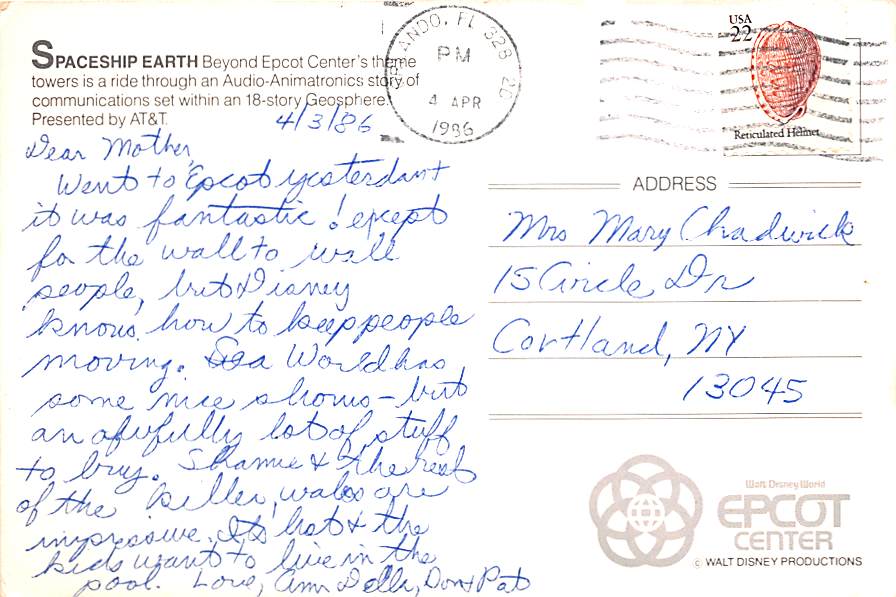 SPACESHIP EARTH Beyond Epcot Center's theme
towers is a ride through an Audio-Animatronics story of
communications set within an 18-story Geosphere.
Presented by AT&T.
4/3/86
Dear Mother,
Went to Epcot yesterday &
it was fantastic! except
for the wall to wall
people, but Disney
knows how to keep people
moving. Sea World has
some nice shows - but
an awfully lot of stuff
to buy. Shamu & the rest
of the killer wales are
impressive. It's hot & the
kids want to live in the
pool. Love, Ann Della, Don & Pat
ORLANDO, FL 328
PM
4 APR
1986
USA
22
Reticulated Helmet
ADDRESS
Mrs Mary Chadwick
15 Circle Dr
Cortland, NY
13045
Walt Disney World
EPCOT
CENTER
© WALT DISNEY PRODUCTIONS